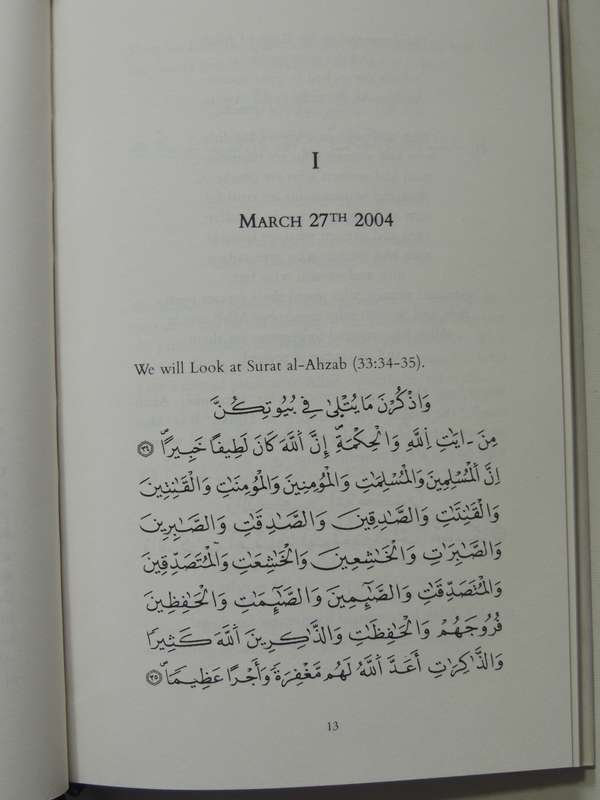 I
MARCH 27TH 2004
We will Look at Surat al-Ahzab (33:34-35).
وَاذْكُرْنَ مَا يُتْلٰى فِي بُيُوتِكُنَّ
مِنَ ـ ايَٰتِ اِ۬للَّهِ وَالْحِكْمَةِ إِنَّ اَ۬للَّهَ كَانَ لَطِيفاً خَبِيراًۖ ٣٤
اِنَّ اَ۬لْمُسْلِمِينَ وَالْمُسْلِمَاتِ وَالْمُؤْمِنِينَ وَالْمُؤْمِنَٰتِ وَالْقَٰنِتِينَ
وَالْقَٰنِتَٰتِ وَالصَّٰدِقِينَ وَالصَّٰدِقَٰتِ وَالصَّٰبِرِينَ
وَالصَّٰبِرَاتِ وَالْخَٰشِعِينَ وَالْخَٰشِعَٰتِ وَالْمُتَصَدِّقِينَ
وَالْمُتَصَدِّقَٰتِ وَالصَّٰٓئِمِينَ وَالصَّٰٓئِمَٰتِ وَالْحَٰفِظِينَ
فُرُوجَهُمْ وَالْحَٰفِظَٰتِ وَالذَّٰكِرِينَ اَ۬للَّهَ كَثِيراً
وَالذَّٰكِرَٰتِ أَعَدَّ اَ۬للَّهُ لَهُم مَّغْفِرَةً وَأَجْراً عَظِيماًۖ ٣٥
13